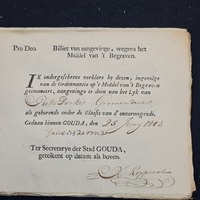 Pro Deo. Billiet van aangevinge, wegens het
Middel van 't Begraven.
IK ondergeschreve verklare by dezen, ingevolge
van de Ordonnantie op 't Middel van 't Begraven
geëmaneert, aangevinge te doen van het Lyk van
als gehorende onder de Classis van d'onvermogende.
Gedaan binnen GOUDA, den 25 1803
Ter Secretarye der Stad GOUDA,
getekent op datum als boven.